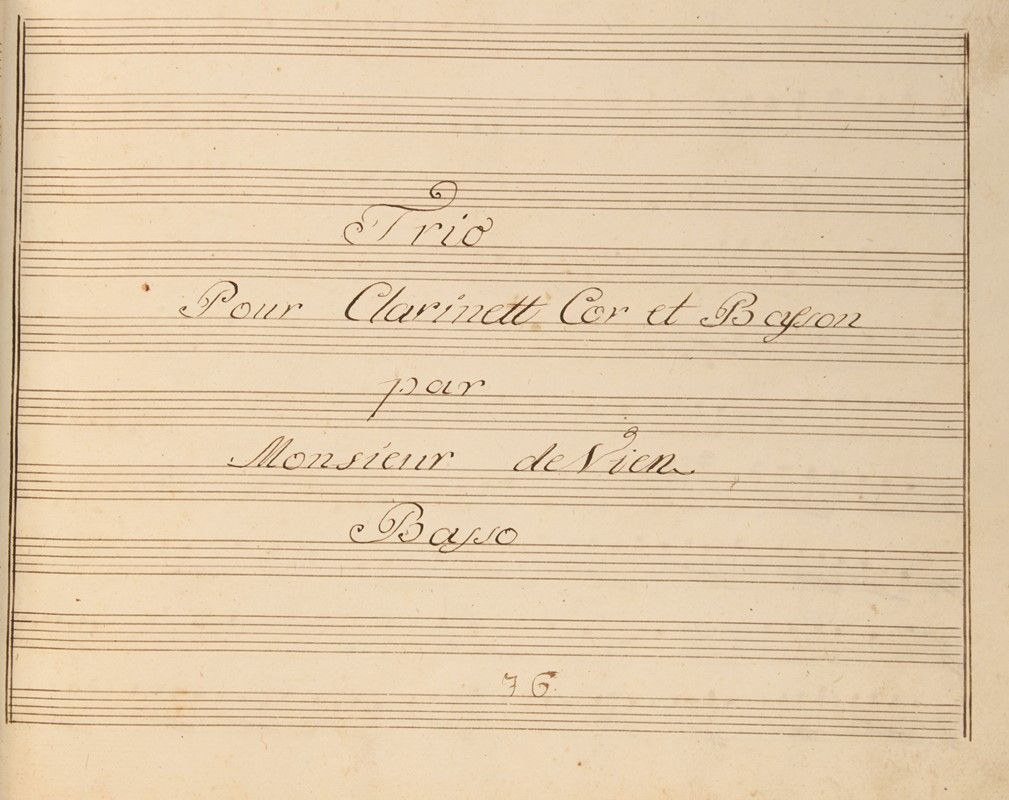 Trio
Pour Clarinett Cor et Basson
par
Monsieur de Vien
Basso
76